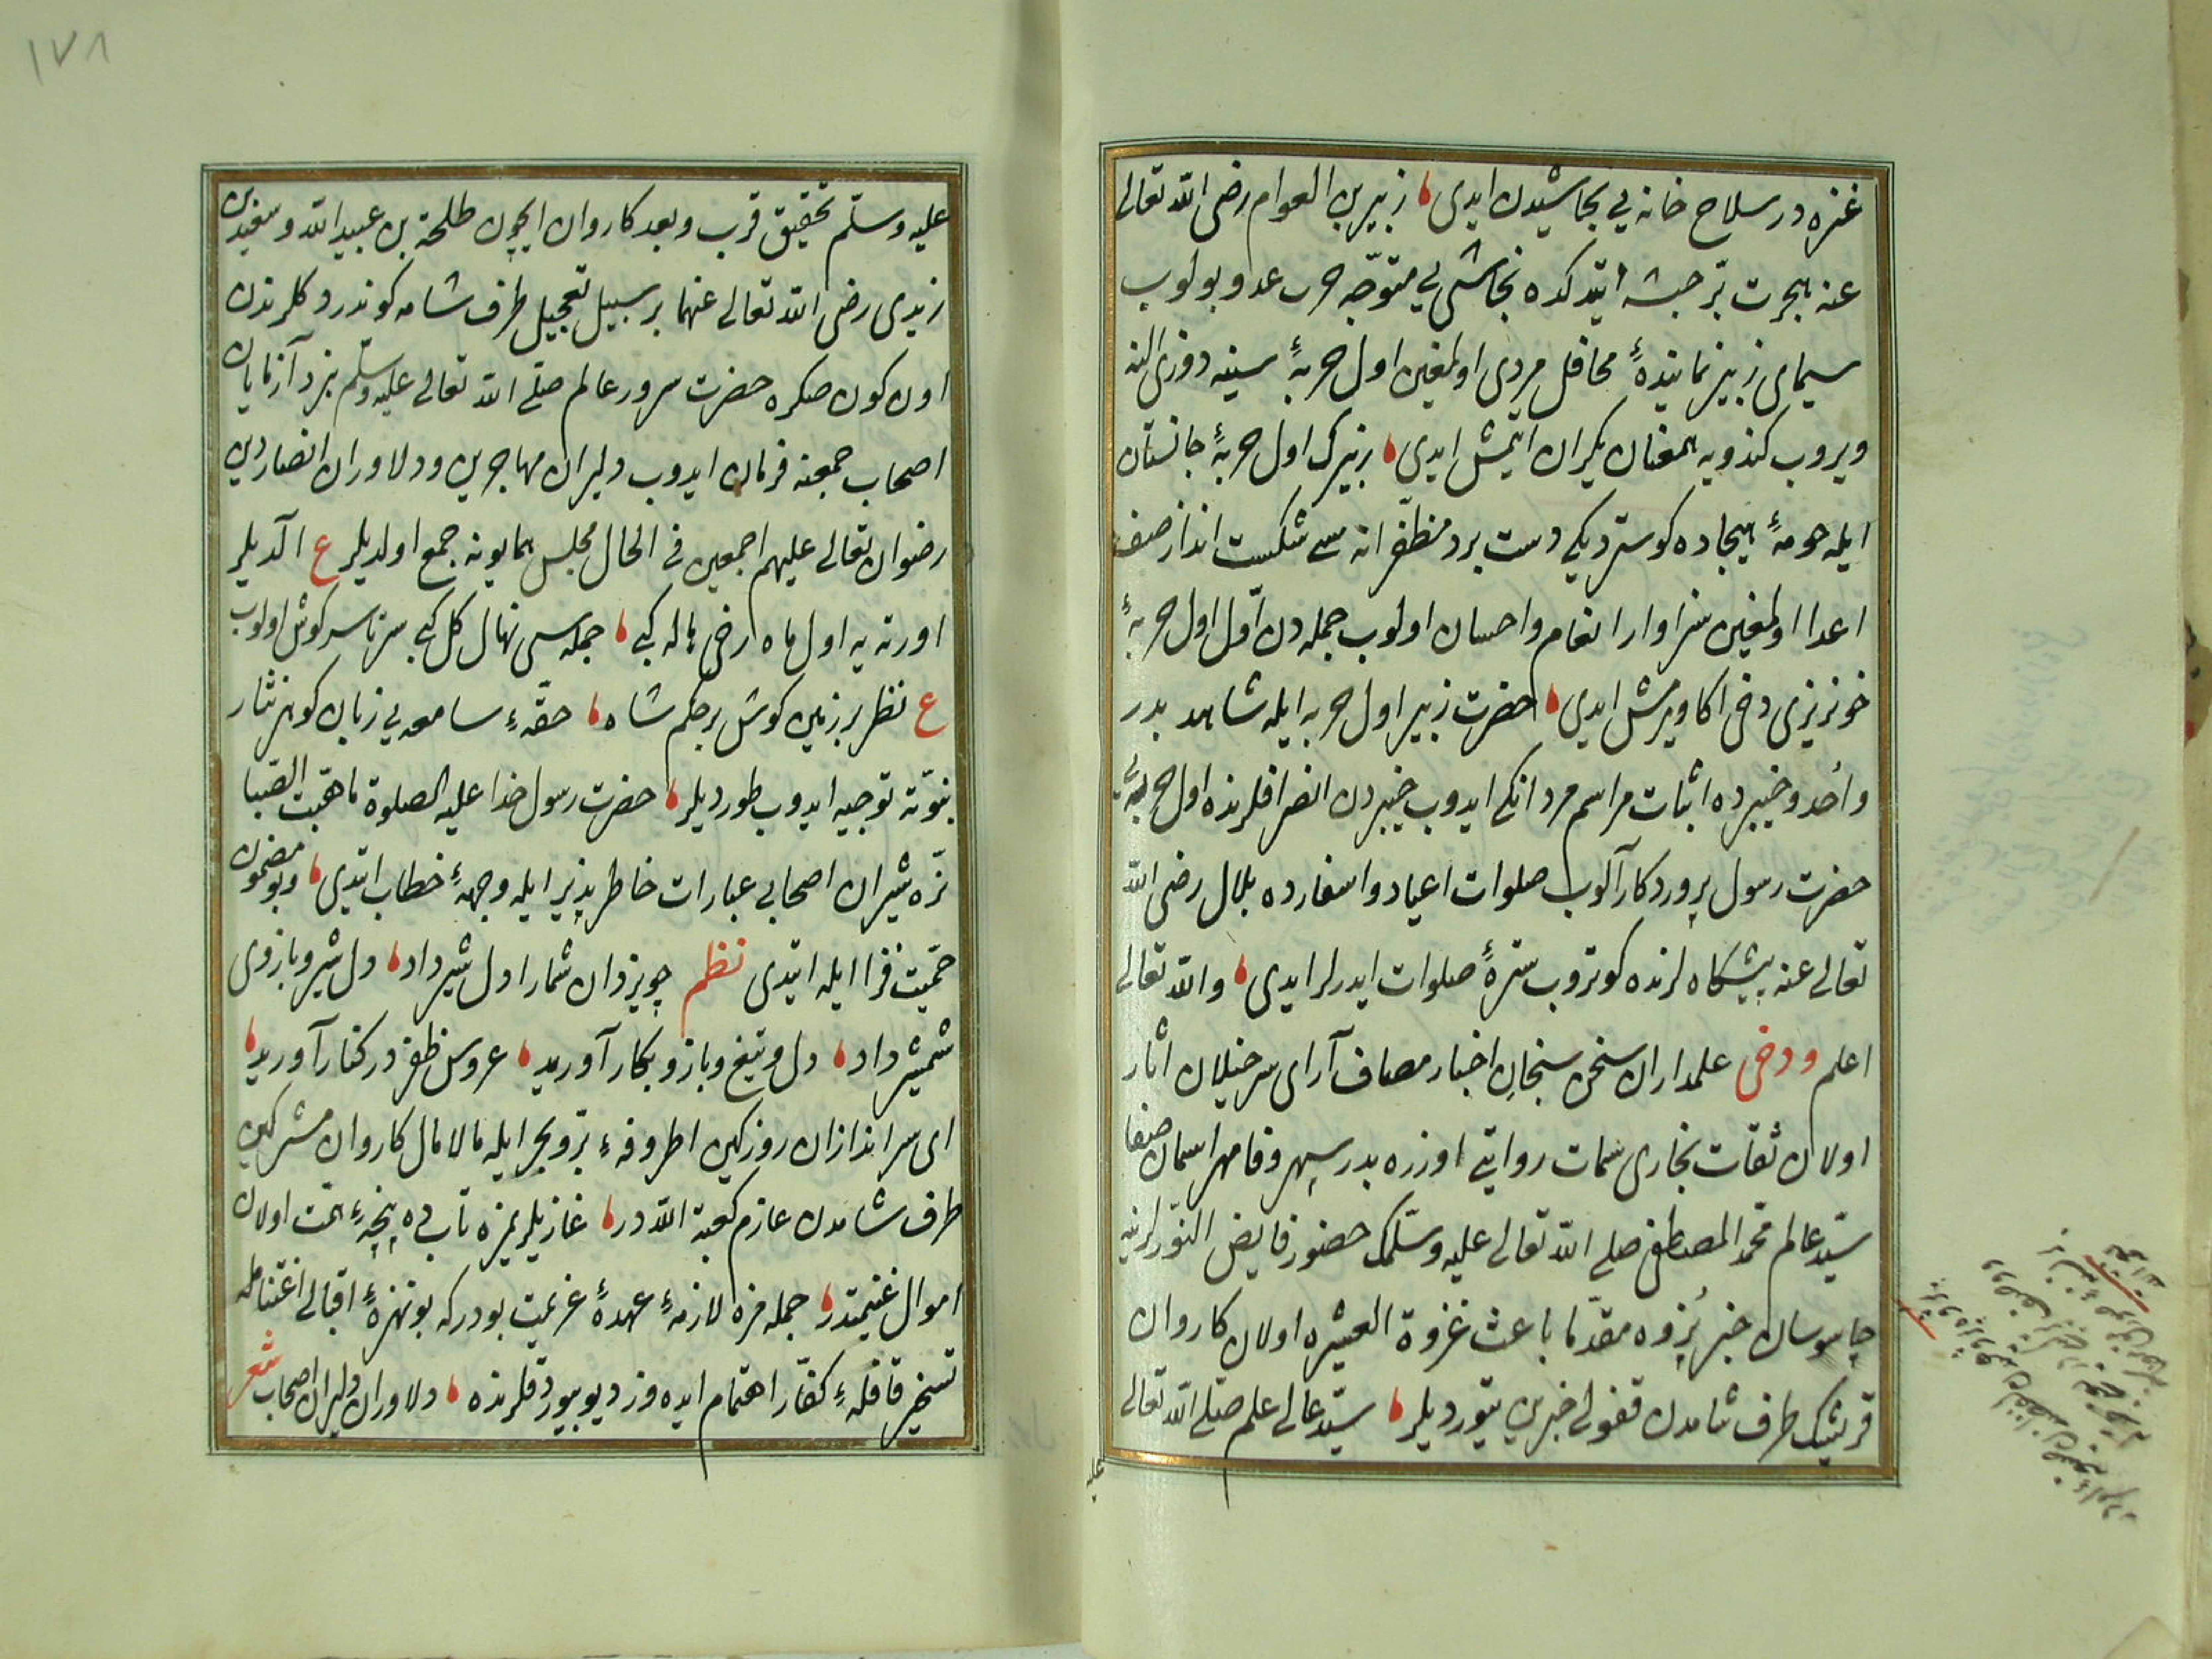 عنزه در سلاح خانه يي نجاشيدن ايدى زبير بن العوام رضى الله تعالى
عنه هجرت بر حبشه ايتد كده نجاشى يي متوجّه حرب عدو بولوب
سيماى زبير نماينده محافل مردى اولمغين اول حربهٔ سينه دوزى الينه
ويروب كندويه همعنان يكران ايتمش ايدى زبيرك اول حربهٔ جانستان
ايله حومهٔ هيجاده كوستر ديكى دست برد مظفّرانه سى شكست انداز صف
اعدا اولمغين سزاوار انعام واحسان اولوب جمله دن اوّل اول حربهٔ
خونريزى دخى اكا ويرمش ايدى حضرت زبير اول حربه ايله مشاهد بدر
وأحد وخيبرده اثبات مراسم مردانكى ايدوب خيبردن انصرافلرنده اول حربه يى
حضرت رسول پروردكار آلوب صلوات اعياد واسفارده بلال رضى الله
تعالى عنه پيشكاه لرنده كوتروب سترهٔ صلوات ايدرلر ايدى والله تعالى
اعلم ودخى علمداران سخن سنجان اخبار مصاف آراى سرخيلان اثار
اولان ثقات بخارى سمات روايتى اوزره بدر سپهر وفا مهر اسمان صفا
سيّد عالم محمّد المصطفى صلى الله تعالى عليه وسلّمك حضور فايض النّورلرينه
جاسوسان خبر پژوه مقدّما باعث غزوة العشيره اولان كاروان
قريشك طرف شامدن قفولى خبرين يتورديلر سيّد عالى علم صلّى الله تعالى
عليه
١٧٨
عليه وسلّم تحقيق قرب وبعد كاروان ايچون طلحة بن عبيد الله وسعيد بن
زيدى رضى الله تعالى عنهما بر سبيل تعجيل طرف شامه كوندردكلرندن
اون كون صكره حضرت سرور عالم صلّى الله تعالى عليه وسلّم نبرد آزمايان
اصحاب جمعنه فرمان ايدوب دليران مهاجرين ودلاوران انصار دين
رضوان تعالى عليهم اجمعين فى الحال مجلس همايونه جمع اولديلر ع آلديلر
اورته يه اول ماه رخى هاله كبى جمله سى نهال كل كبى سرتاسر كوش اولوب
ع نظر بر زمين كوش بر حكم شاه حقّهٔ سامعه يي زبان كوهر نثار
نبوّته توجيه ايدوب طورديلر حضرت رسول خدا عليه الصلوة ما هبّت الصّبا
نرّه شيران اصحابى عبارات خاطر پذير ايله وجههٔ خطاب ايتدى وبو مضمون
حميّت فزا ايله ايتدى نظم چو يزدان شمارا دل شير داد دل شير وبازوى
شمشير داد دل وتيغ وبازو بكار آوريد عروس ظفر در كنار آوريد
اى سراندازان روز كين اطروفهٔ برّ وبحر ايله مالامال كاروان مشركين
طرف شامدن عازم كعبة الله در غازيلريمزه تاب ده پنجهٔ همّت اولان
اموال غنيمتدر جمله مزه لازمهٔ عهدهٔ عزيمت بودر كه بو نهزهٔ اقبالى اغتنامله
تسخير قافلهٔ كفّار اهتمام ايده وز ديو بيوردقلرنده دلاوران دليران اصحاب شعر